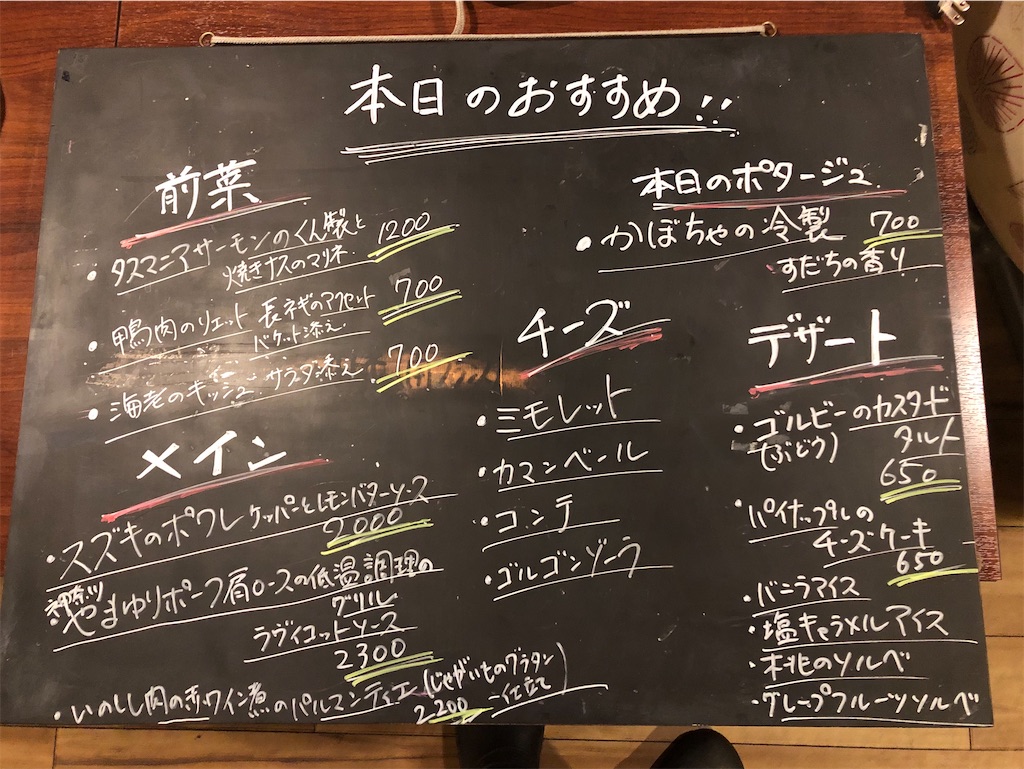 本日のおすすめ!!
前菜
・タスマニアサーモンのくん製と 1200
焼きナスのマリネ
・鴨肉のリエット 長ネギのアクセント 700
バケット添え
・海老のキッシュ サラダ添え 700
メイン
・スズキのポワレ ケッパーとレモンバターソース
2000
・やまゆりポーク肩ロースの低温調理の
グリル
ラヴィコットソース
2300
・いのしし肉の赤ワイン煮のパルマンティエ (じゃがいものグラタン
仕立て)
2200
本日のポタージュ
・かぼちゃの冷製 700
すだちの香り
チーズ
・ミモレット
・カマンベール
・コンテ
・ゴルゴンゾーラ
デザート
・ゴルビーのカスタード
(ぶどう) タルト
650
・パイナップルの
チーズケーキ
650
・バニラアイス
・塩キャラメルアイス
・木桃のソルベ
・グレープフルーツソルベ